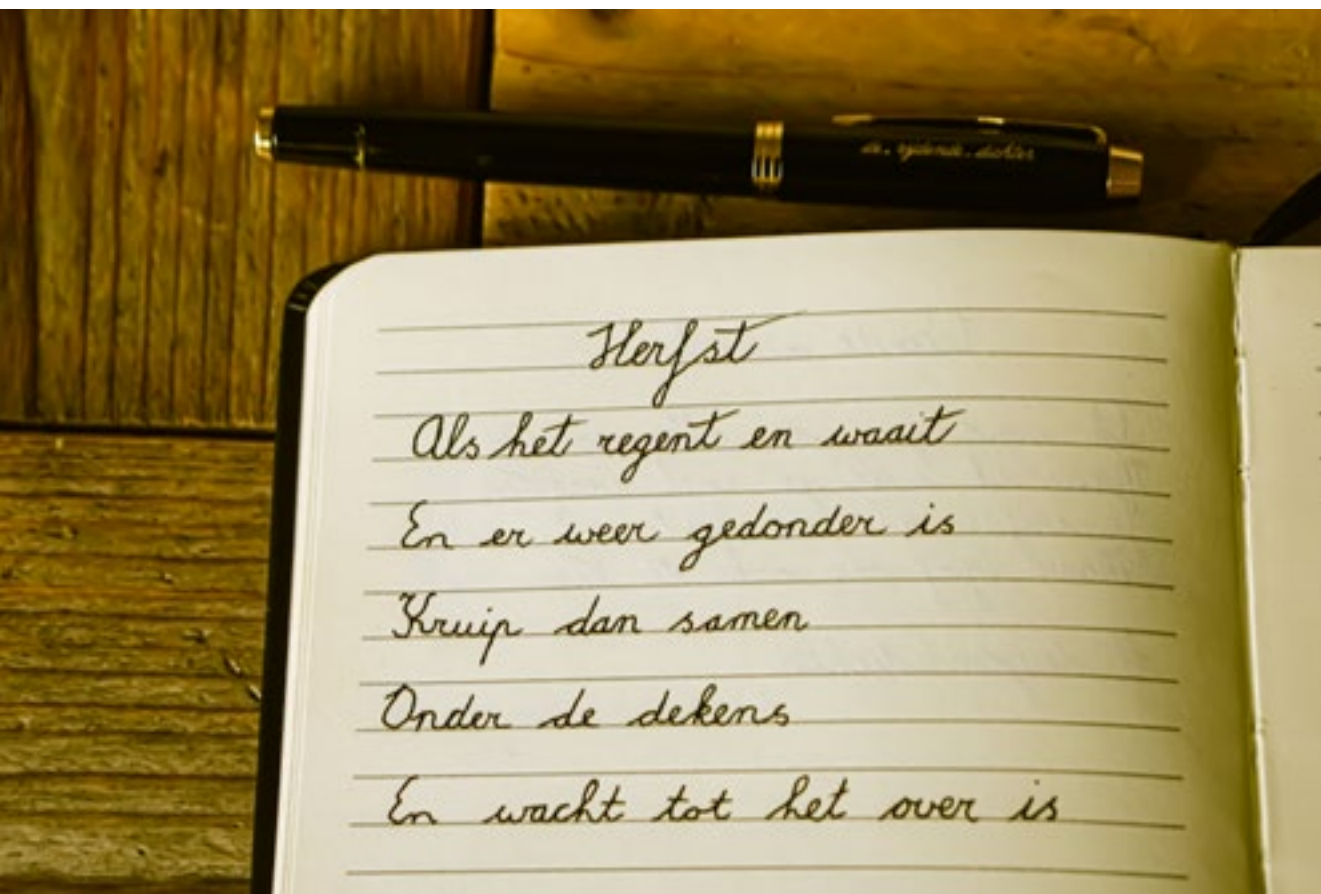 de.rijdende.dichter
Herfst
Als het regent en waait
En er weer gedonder is
Kruip dan samen
Onder de dekens
En wacht tot het over is